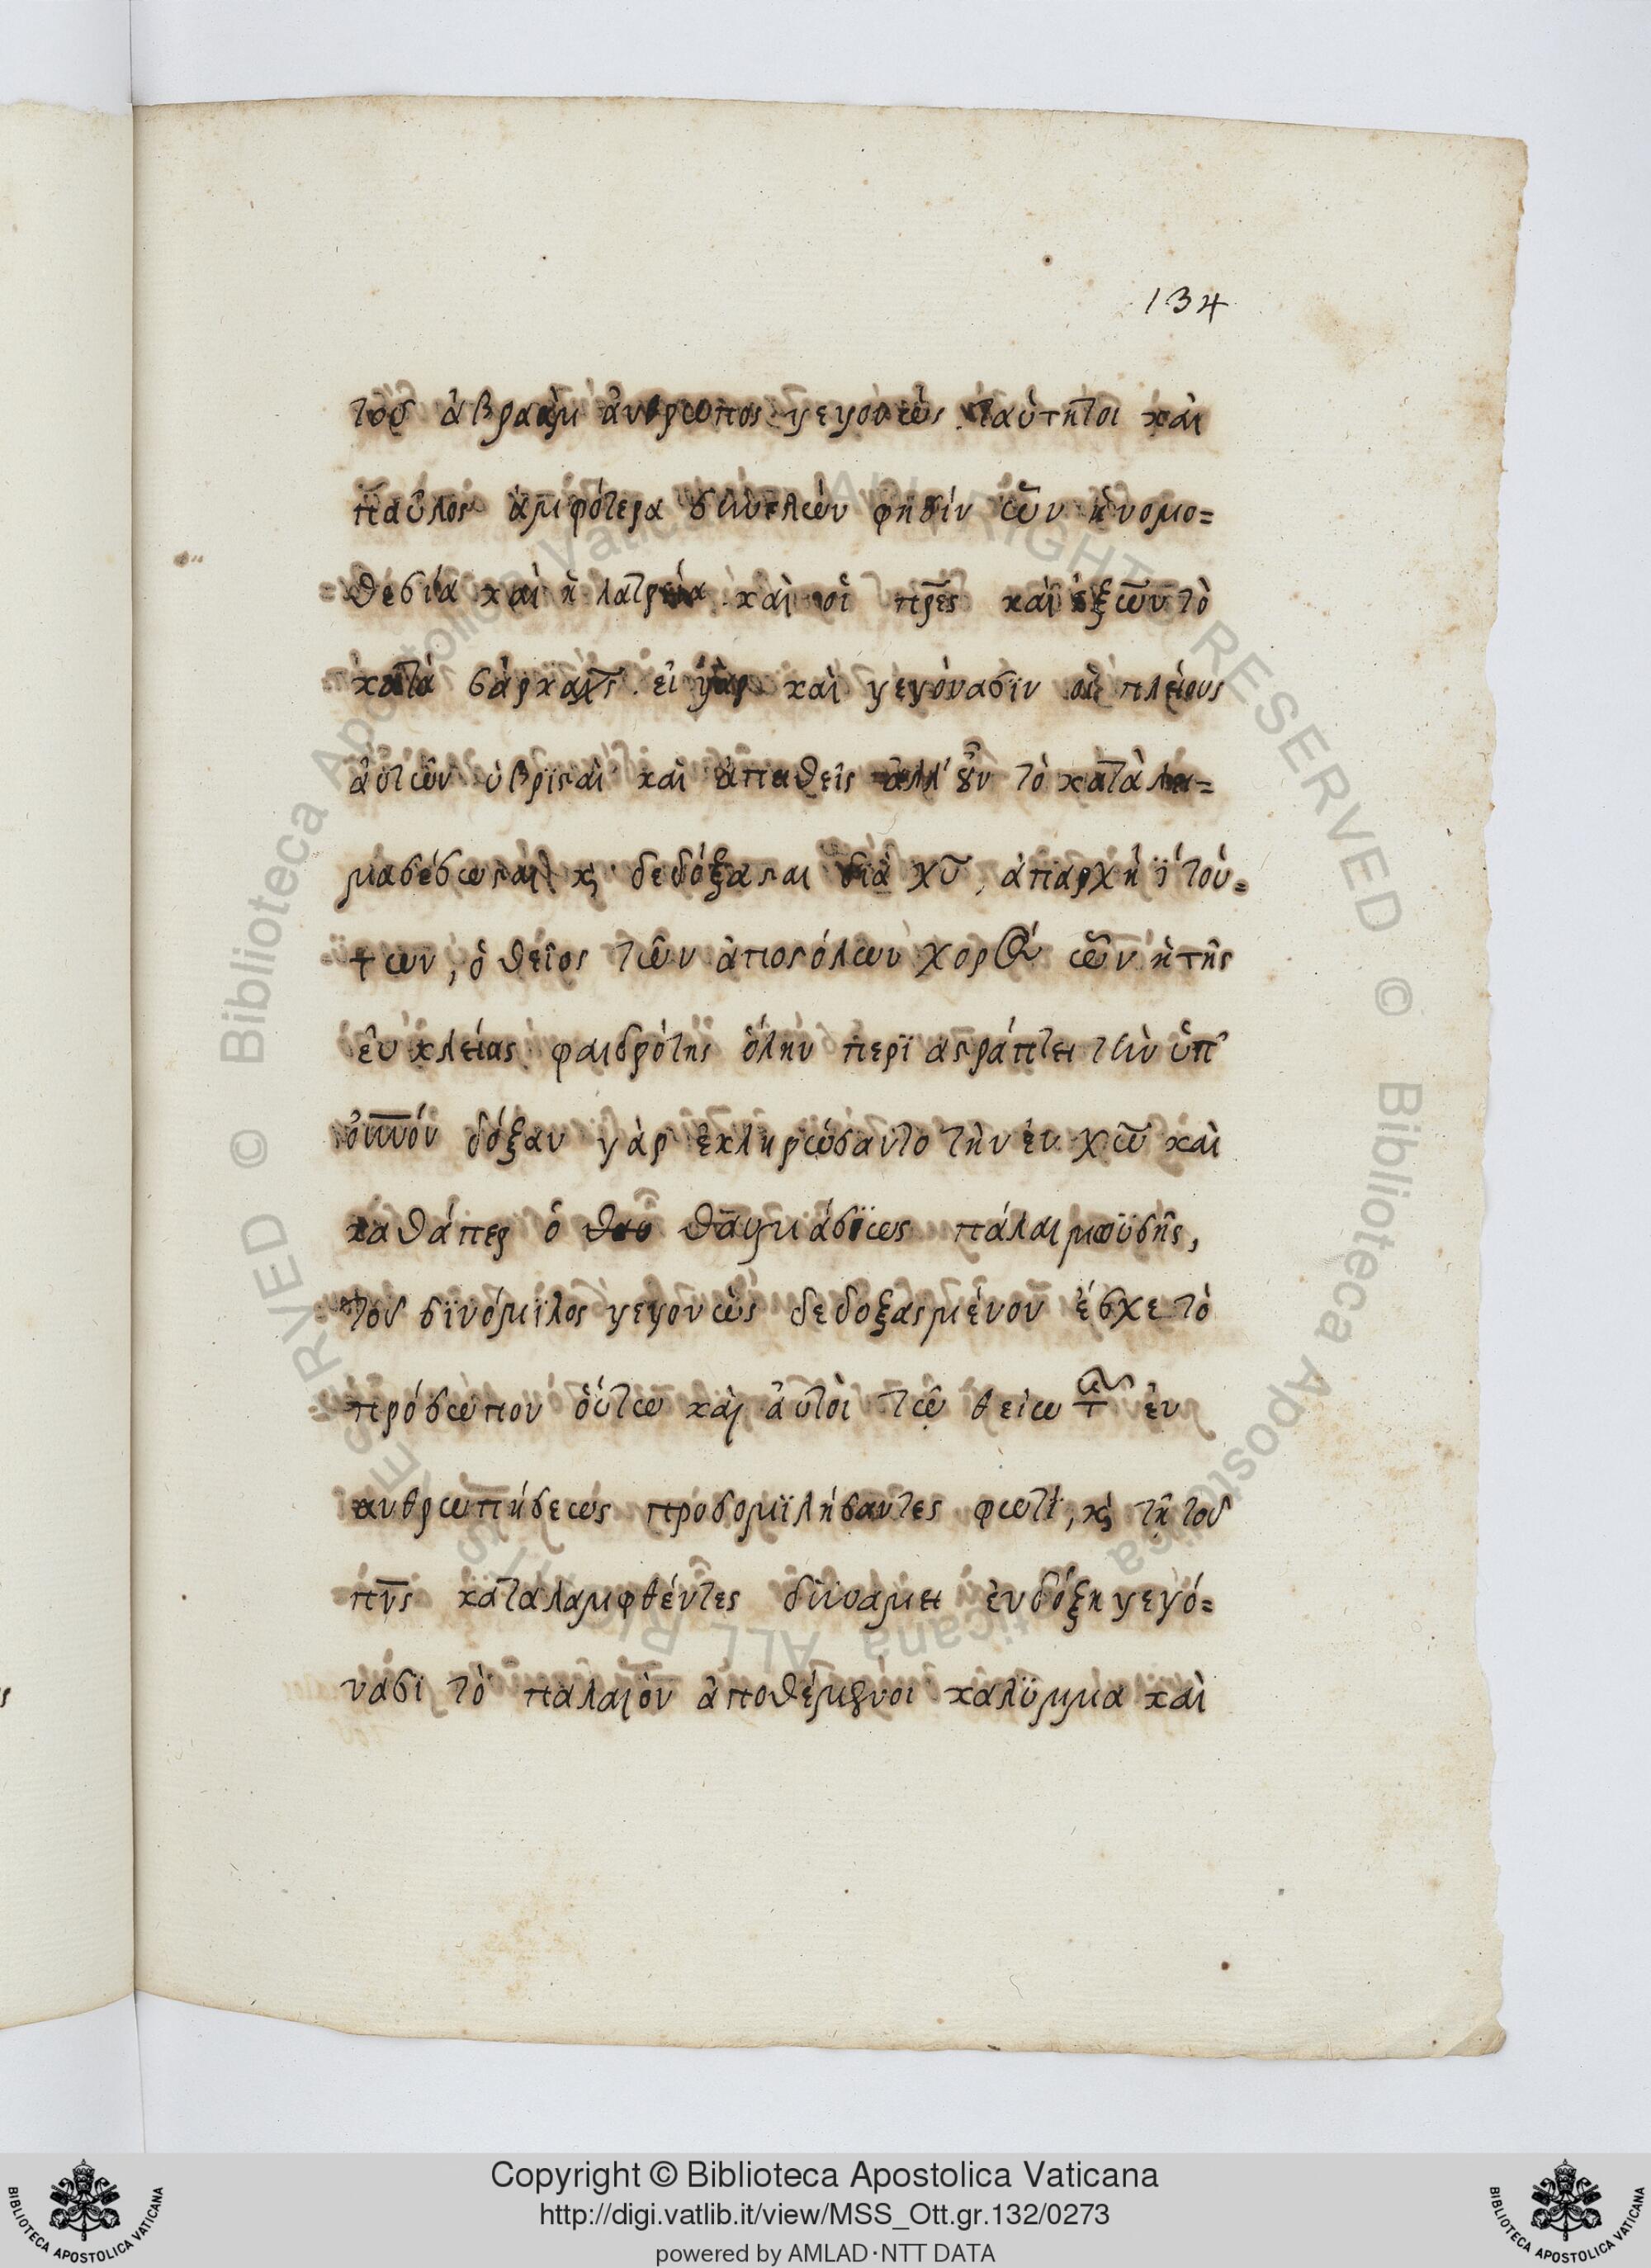 134
τοῦ ἀβραὰμ ἄνθρωπος γεγονὼς. ταύτητοι καὶ
παῦλος ἀμφότερα φησίν ὧν ἡ νομο=
θεσία καὶ ἡ λατρεία. καὶ οἱ πρ̅ες καὶ ἐξ ὧν τὸ
κατὰ σάρκα. εἰ γὰρ καὶ γεγόνασιν οἱ πλείους
αὐτῶν ὑβρισταὶ καὶ ἀπειθεῖς ἀλλ' οὖν τὸ κατάλη=
μα σέσωσται κ̀ δεδόξασται διὰ χυ̅, ἀπαρχὴ τού=
των, ὁ θεῖος τῶν ἀποστόλων χορὸς ὧν ἡ τῆς
εὐκλείας φαιδρότης ὅλην περϊαστράπτει τὴν ὑπ'
οὐν̅όν δόξαν γὰρ ἐκληρώσαντο τὴν ἐν χω̅ καὶ
καθάπερ ὁ θαυμάσϊως πάλαι μωϋσῆς,
τοῦ σϊνόμϊλος γεγονὼς δεδοξασμένον ἔσχε τὸ
πρόσωπον οὕτω καὶ αὐτοὶ τῶ θείω τ ἐν
ανθρωπήσεως προσομϊλήσαντες φωτὶ, κ̀ τῆ τοῦ
πν̅ς καταλαμφθέντες δυνάμει ἐνδόξη γεγό=
νασϊ τὸ παλαιὸν ἀποθέμενοι καλϋμμα καὶ
Copyright © Biblioteca Apostolica Vaticana
http://digi.vatlib.it/view/MSS_Ott.gr.132/0273
powered by AMLAD·NTT DATA
BIBLIOTECA APOSTOLICA VATICANA
BIBLIOTECA APOSTOLICA VATICANA